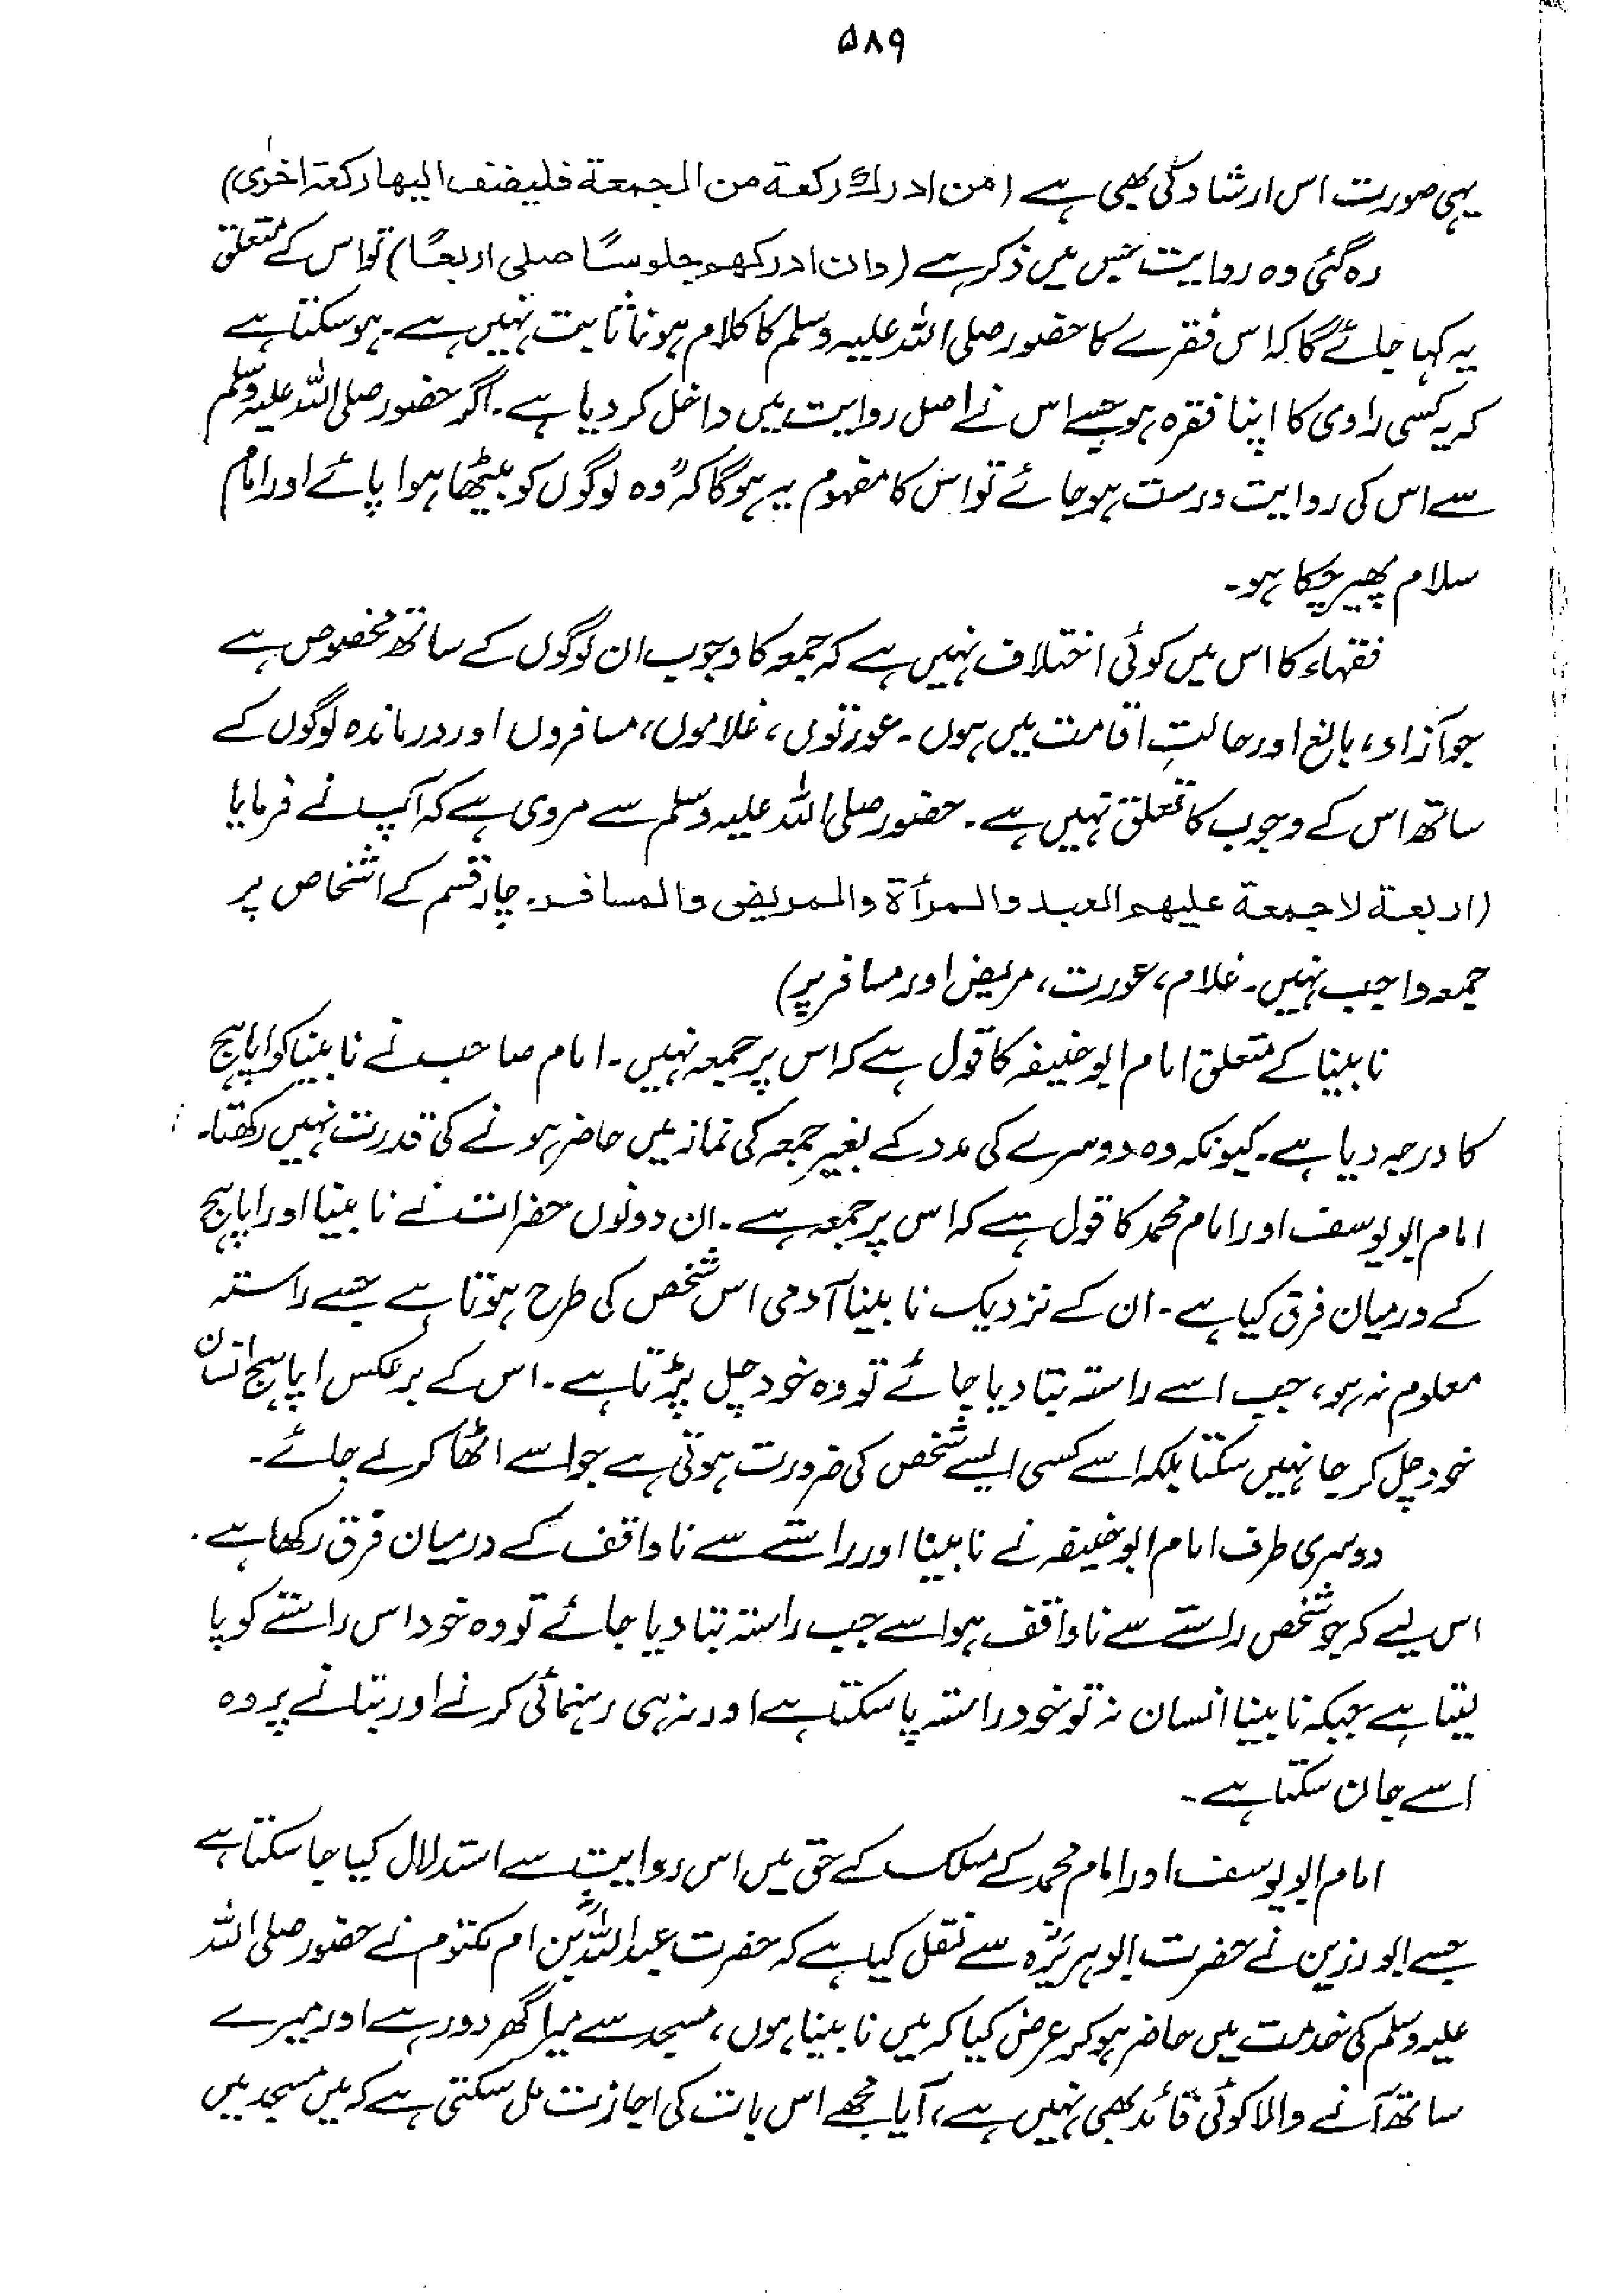 ۵۸۹
یہی صورت اس ارشاد کی بھی ہے (من ادرك ركعة من الجمعة فليضف اليها ركعة اخرٰى)
رہ گئی وہ روایت جس میں ذکر ہے (وان ادركهم جلوسًا صلى اربعًا) تو اس کے متعلق
یہ کہا جائے گا کہ اس فقرے کا حضور صلی اللہ علیہ وسلم کا کلام ہونا ثابت نہیں ہے۔ ہو سکتا ہے
کہ یہ کسی راوی کا اپنا فقرہ ہو جسے اس نے اصل روایت میں داخل کر دیا ہے۔ اگر حضور صلی اللہ علیہ وسلم
سے اس کی روایت درست ہو جائے تو اس کا مفہوم یہ ہوگا کہ "وہ لوگوں کو بیٹھا ہوا پائے اور امام
سلام پھیر چکا ہو۔
فقہاء کا اس میں کوئی اختلاف نہیں ہے کہ جمعہ کا وجوب ان لوگوں کے ساتھ مخصوص ہے
جو آزاد، بالغ اور حالتِ اقامت میں ہوں۔ عورتوں، غلاموں، مسافروں اور درماندہ لوگوں کے
ساتھ اس کے وجوب کا تعلق نہیں ہے۔ حضور صلی اللہ علیہ وسلم سے مروی ہے کہ آپ نے فرمایا
(اربعة لا جمعة عليهم العبد والمرأة والمريض والمسافر۔ چار قسم کے اشخاص پر
جمعہ واجب نہیں۔ غلام، عورت، مریض اور مسافر پر)
نابینا کے متعلق امام ابو حنیفہ کا قول ہے کہ اس پر جمعہ نہیں۔ امام صاحب نے نابینا کو اپاہج
کا درجہ دیا ہے۔ کیونکہ وہ دوسرے کی مدد کے بغیر جمعہ کی نماز میں حاضر ہونے کی قدرت نہیں رکھتا۔
امام ابو یوسف اور امام محمد کا قول ہے کہ اس پر جمعہ ہے۔ ان دونوں حضرات نے نابینا اور اپاہج
کے درمیان فرق کیا ہے۔ ان کے نزدیک نابینا آدمی اس شخص کی طرح ہوتا ہے جسے راستہ
معلوم نہ ہو، جب اسے راستہ بتا دیا جائے تو وہ خود چل پڑتا ہے۔ اس کے برعکس اپاہج انسان
خود چل کر جا نہیں سکتا بلکہ اسے کسی ایسے شخص کی ضرورت ہوتی ہے جو اسے اٹھا کر لے جائے۔
دوسری طرف امام ابو حنیفہ نے نابینا اور راستے سے ناواقف کے درمیان فرق رکھا ہے۔
اس لیے کہ جو شخص راستے سے ناواقف ہو اسے جب راستہ بتا دیا جائے تو وہ خود اس راستے کو پا
لیتا ہے جبکہ نابینا انسان نہ تو خود راستہ پا سکتا ہے اور نہ ہی رہنمائی کرنے اور بتانے پر وہ
اسے جان سکتا ہے۔
امام ابو یوسف اور امام محمد کے مسلک کے حق میں اس روایت سے استدلال کیا جا سکتا ہے
جسے ابو رزین نے حضرت ابو ہریرہؓ سے نقل کیا ہے کہ حضرت عبداللہؓ بن ام مکتوم نے حضور صلی اللہ
علیہ وسلم کی خدمت میں حاضر ہو کر عرض کیا کہ میں نابینا ہوں، مسجد سے میرا گھر دور ہے اور میرے
ساتھ آنے والا کوئی قائد بھی نہیں ہے، آیا مجھے اس بات کی اجازت مل سکتی ہے کہ میں مسجد میں